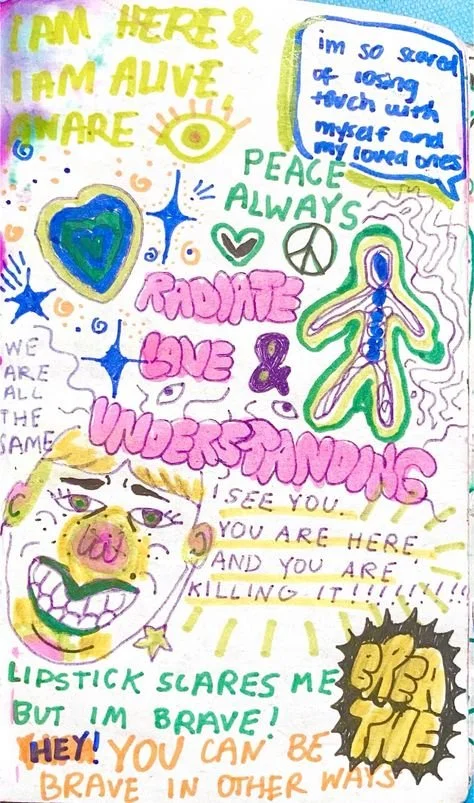 I AM HERE &
I AM ALIVE,
AWARE
im so scared
of losing
touch with
myself and
my loved ones
PEACE
ALWAYS
RADIATE
LOVE &
UNDERSTANDING
WE
ARE
ALL
THE
SAME
I SEE YOU.
YOU ARE HERE
AND YOU ARE
KILLING IT!!!!!!!!!
LIPSTICK SCARES ME
BUT IM BRAVE!
HEY! YOU CAN BE
BRAVE IN OTHER WAYS
BREA
THE